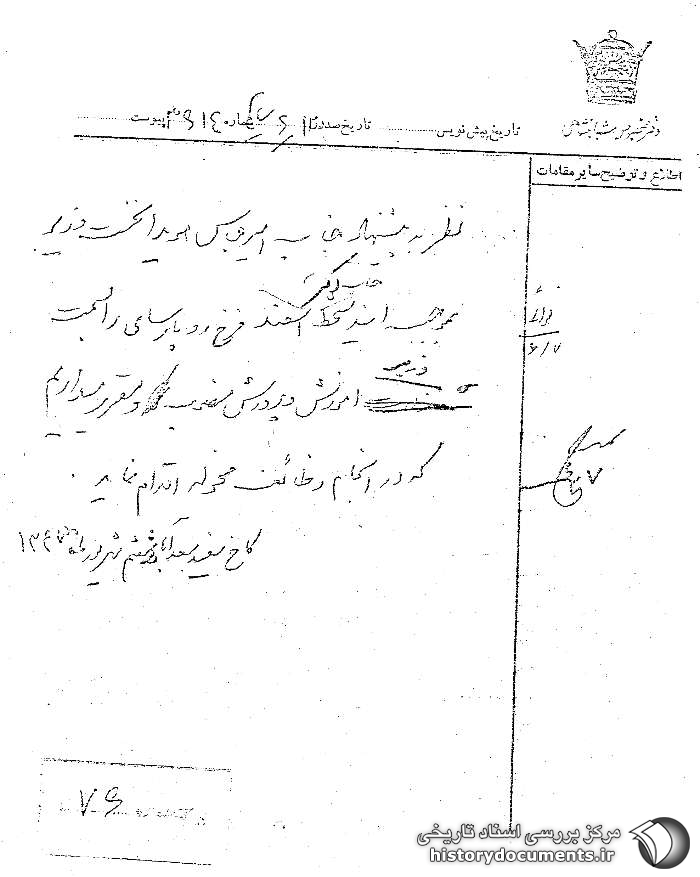 دفتر مخصوص شاهنشاهی
تاریخ پیش نویس تاریخ صدور شماره پیوست
اطلاع و توضیح سایر مقامات
نظر به پیشنهاد جناب امیرعباس هویدا نخست وزیر
جناب دکتر
بموجب این دستخط فرخ رو پارسای را بسمت
وزیر
آموزش و پرورش منصوب و مقرر میداریم
که در انجام وظائف محوله اقدام نماید.
کاخ سفید سعدآباد هشتم شهریور ماه ۱۳۴۷
۶/۷
۷
۷۶
مرکز بررسی اسناد تاریخی
historydocuments.ir